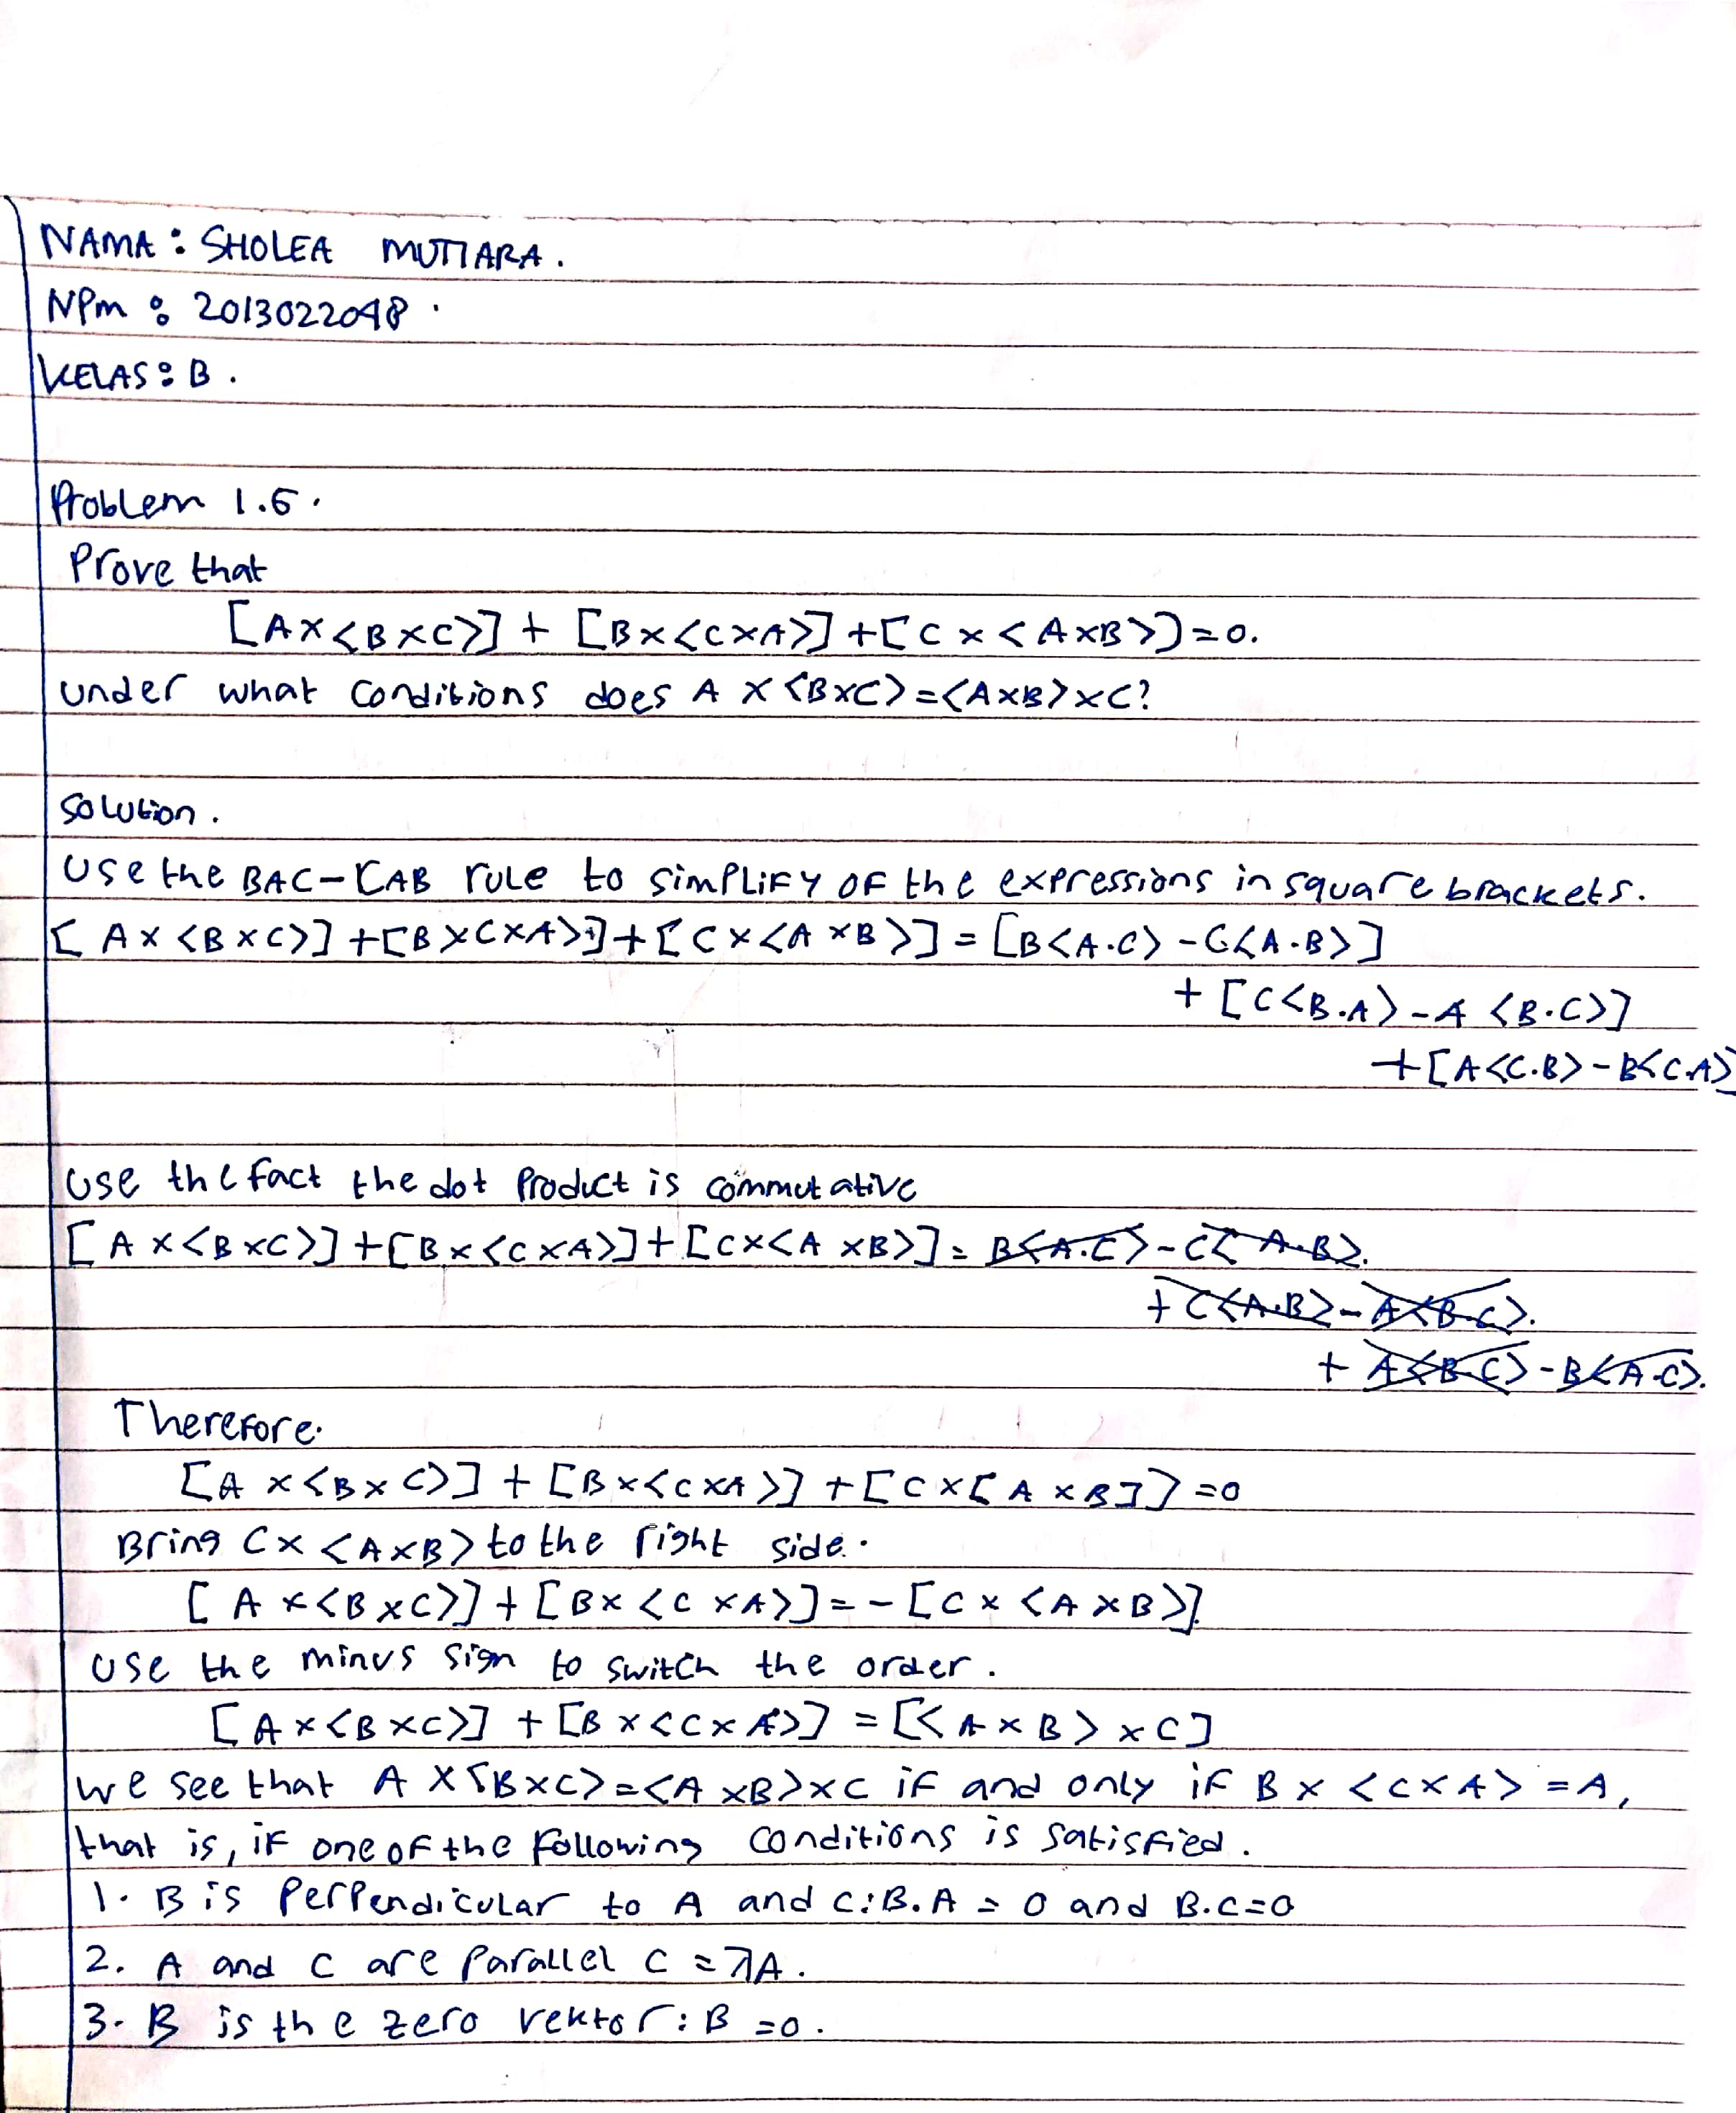 NAMA : SHOLEA MUTIARA.
NPM : 2013022048.
KELAS : B.
Problem 1.6.
Prove that
[A×<B×C>] + [B×<C×A>] + [C×<A×B>] = 0.
under what conditions does A × <B×C> = <A×B>×C?
Solution.
Use the BAC-CAB rule to simplify of the expressions in square brackets.
[A×<B×C>] + [B×C×A>] + [C×<A×B>] = [B<A.C> - C<A.B>]
+ [C<B.A> - A<B.C>]
+ [A<C.B> - B<C.A>]
Use the fact the dot product is commutative
[A×<B×C>] + [B×<C×A>] + [C×<A×B>] = B<A.C> - C<A.B>.
+ C<A.B> - A<B.C>.
+ A<B.C> - B<A.C>.
Therefore.
[A×<B×C>] + [B×<C×A>] + [C×[A×B]] = 0
Bring C×<A×B> to the right side.
[A×<B×C>] + [B×<C×A>] = - [C×<A×B>].
Use the minus sign to switch the order.
[A×<B×C>] + [B×<C×A>] = [<A×B>×C]
we see that A×<B×C> = <A×B>×C if and only if B×<C×A> = A,
that is, if one of the following conditions is satisfied.
1. B is Perpendicular to A and C : B.A = 0 and B.C = 0
2. A and C are parallel C = λA.
3. B is the zero vektor : B = 0.